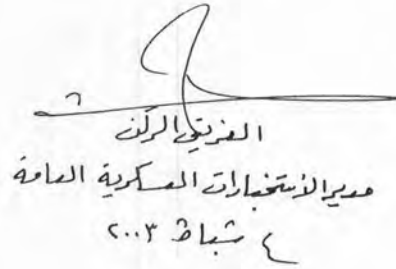 الفريق الركن
مدير الأستخبارات العسكرية العامة
٤ شباط ٢٠٠٣